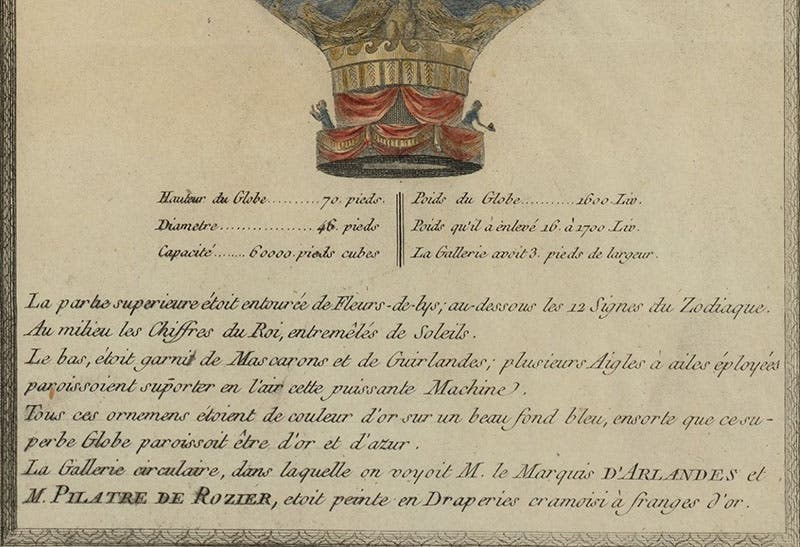 Hauteur du Globe..........70. pieds.
Diametre.................46. pieds
Capacité........60000. pieds cubes
Poids du Globe...........1600 Liv.
Poids qu'il à enlevé 16. à 1700 Liv.
La Gallerie avoit 3. pieds de largeur.
La partie superieure étoit entourée de Fleurs-de-lys; au-dessous les 12 Signes du Zodiaque.
Au milieu les Chiffres du Roi, entremêlés de Soleils.
Le bas, étoit garni de Mascarons et de Guirlandes; plusieurs Aigles à ailes éployées
paroissoient suporter en l'air cette puissante Machine.
Tous ces ornemens étoient de couleur d'or sur un beau fond bleu, ensorte que ce su-
perbe Globe paroissoit être d'or et d'azur.
La Gallerie circulaire, dans laquelle on voyoit M. le Marquis D'ARLANDES et
M. PILATRE DE ROZIER, etoit peinte en Draperies cramoisi à franges d'or.